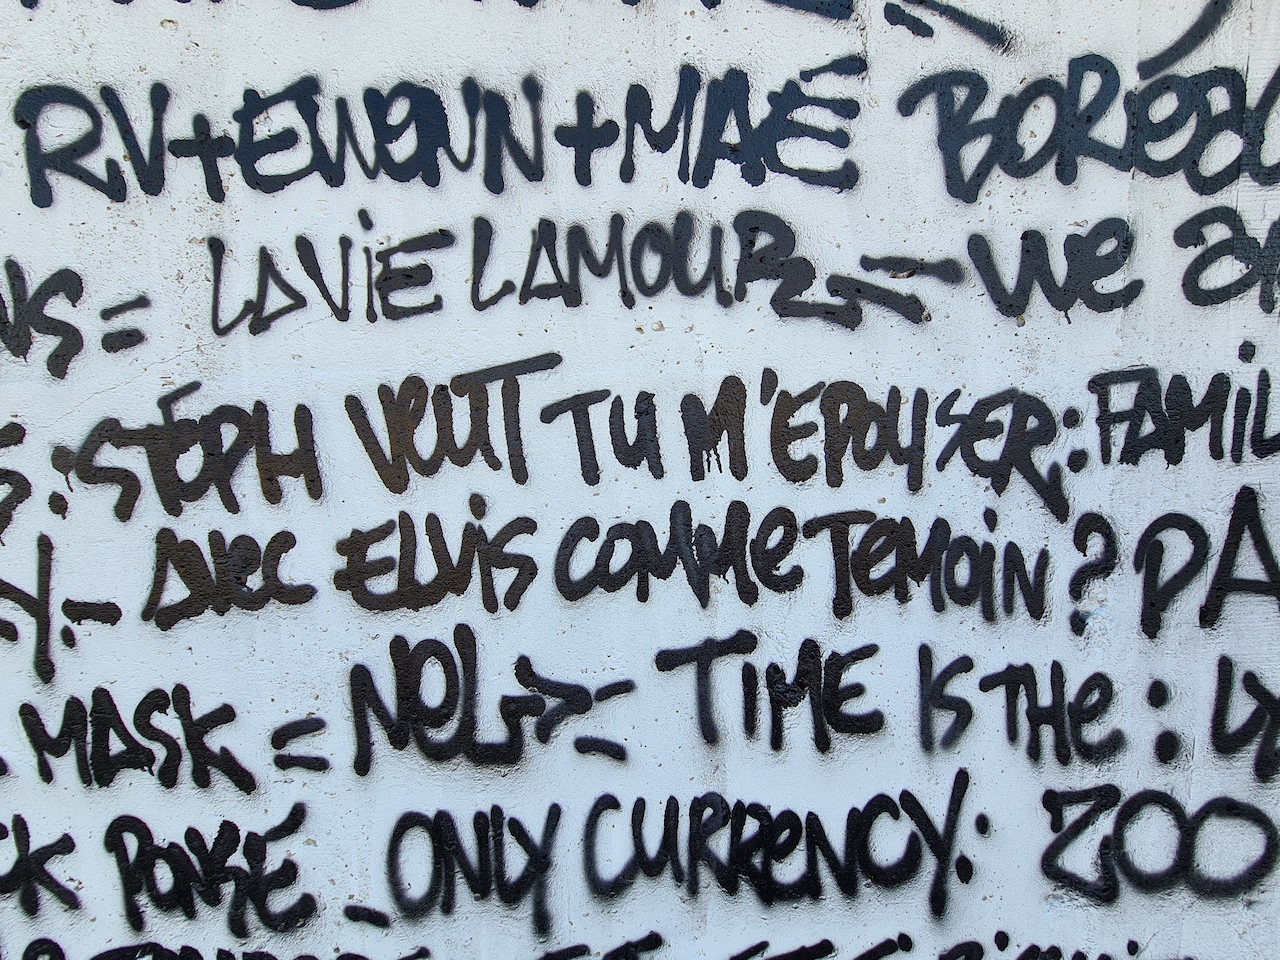 RV+EWENN+MAÉ BORÉA
NS = LA VIE LAMOUR = We ar
S : STÉPH VEUTT TU M'EPOUSER : FAMIL
Y. - AVEC ELVIS COMME TEMOIN ? PA
MASK = NOL> = TIME IS THE :
CK PONKÉ _ ONLY CURRENCY : ZOO